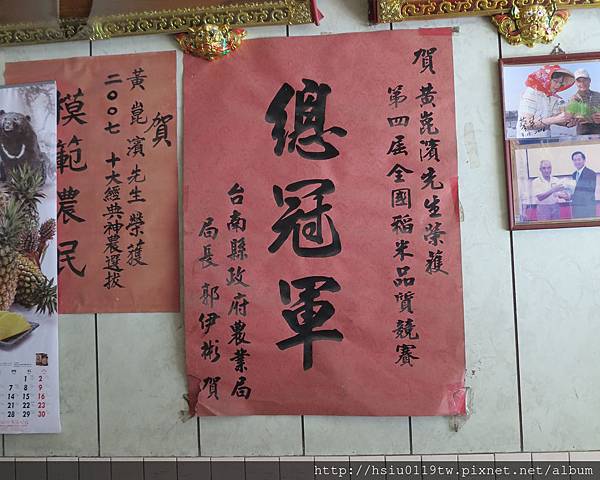 賀 黃崑濱先生榮獲
第四屆全國稻米品質競賽
總冠軍
台南縣政府農業局
局長 郭伊彬 賀
賀
黃崑濱先生榮獲
二00七 十大經典神農選拔
模範農民
1 2
7 8 9
14 15 16
21 22 23
28 29 30
http://hsiu0119tw.pixnet.net/album